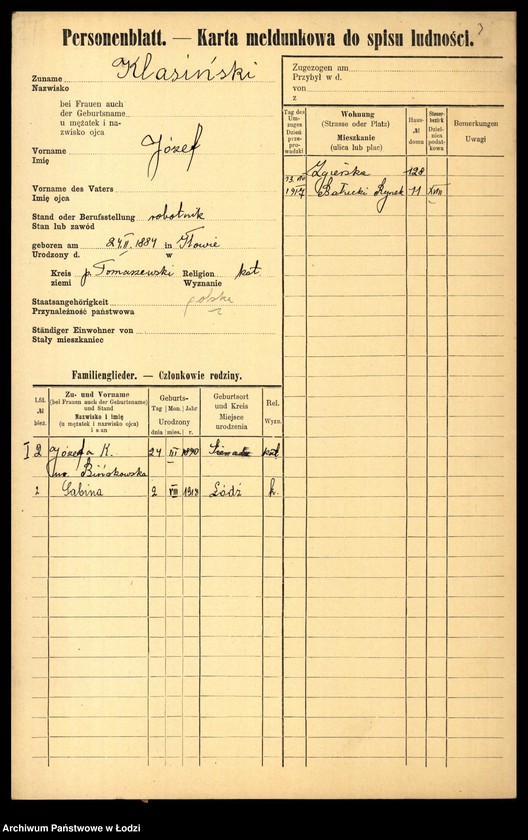 Personenblatt. — Karta meldunkowa do spisu ludności.
Zuname Klasiński
Nazwisko
bei Frauen auch
der Geburtsname
u mężatek i na-
zwisko ojca
Vorname Józef
Imię
Vorname des Vaters
Imię ojca
Stand oder Berufsstellung robotnik
Stan lub zawód
geboren am 27.II.1887 in Iłowie
Urodzony d. w
Kreis p. Tomaszewski Religion kat
ziemi Wyznanie
Staatsangehörigkeit polska
Przynależność państwowa
Ständiger Einwohner von
Stały mieszkaniec
Zugezogen am
Przybył w d.
von
z
Tag des Um-zuges Dzień prze-prowadzki
Wohnung (Strasse oder Platz) Mieszkanie (ulica lub plac)
Haus-№ domu
Steuer-bezirk Dziel-nica podat-kowa
Bemerkungen Uwagi
Zgierska 128
1917 Bałucki Rynek 11 XVII
Familienglieder. — Członkowie rodziny.
Lfd. № bież.
Zu- und Vorname (bei Frauen auch der Geburtsname) und Stand Nazwisko i imię (u mężatek i nazwisko ojca) i stan
Geburts- Tag Mon. Jahr Urodzony dnia mies. r.
Geburtsort und Kreis Miejsce urodzenia
Rel. Wyzn.
I 2 Józefa K. 24 III 1890 kat
Bińkowska
2 Sabina 2 VIII 1913 Łódź k.
Archiwum Państwowe w Łodzi